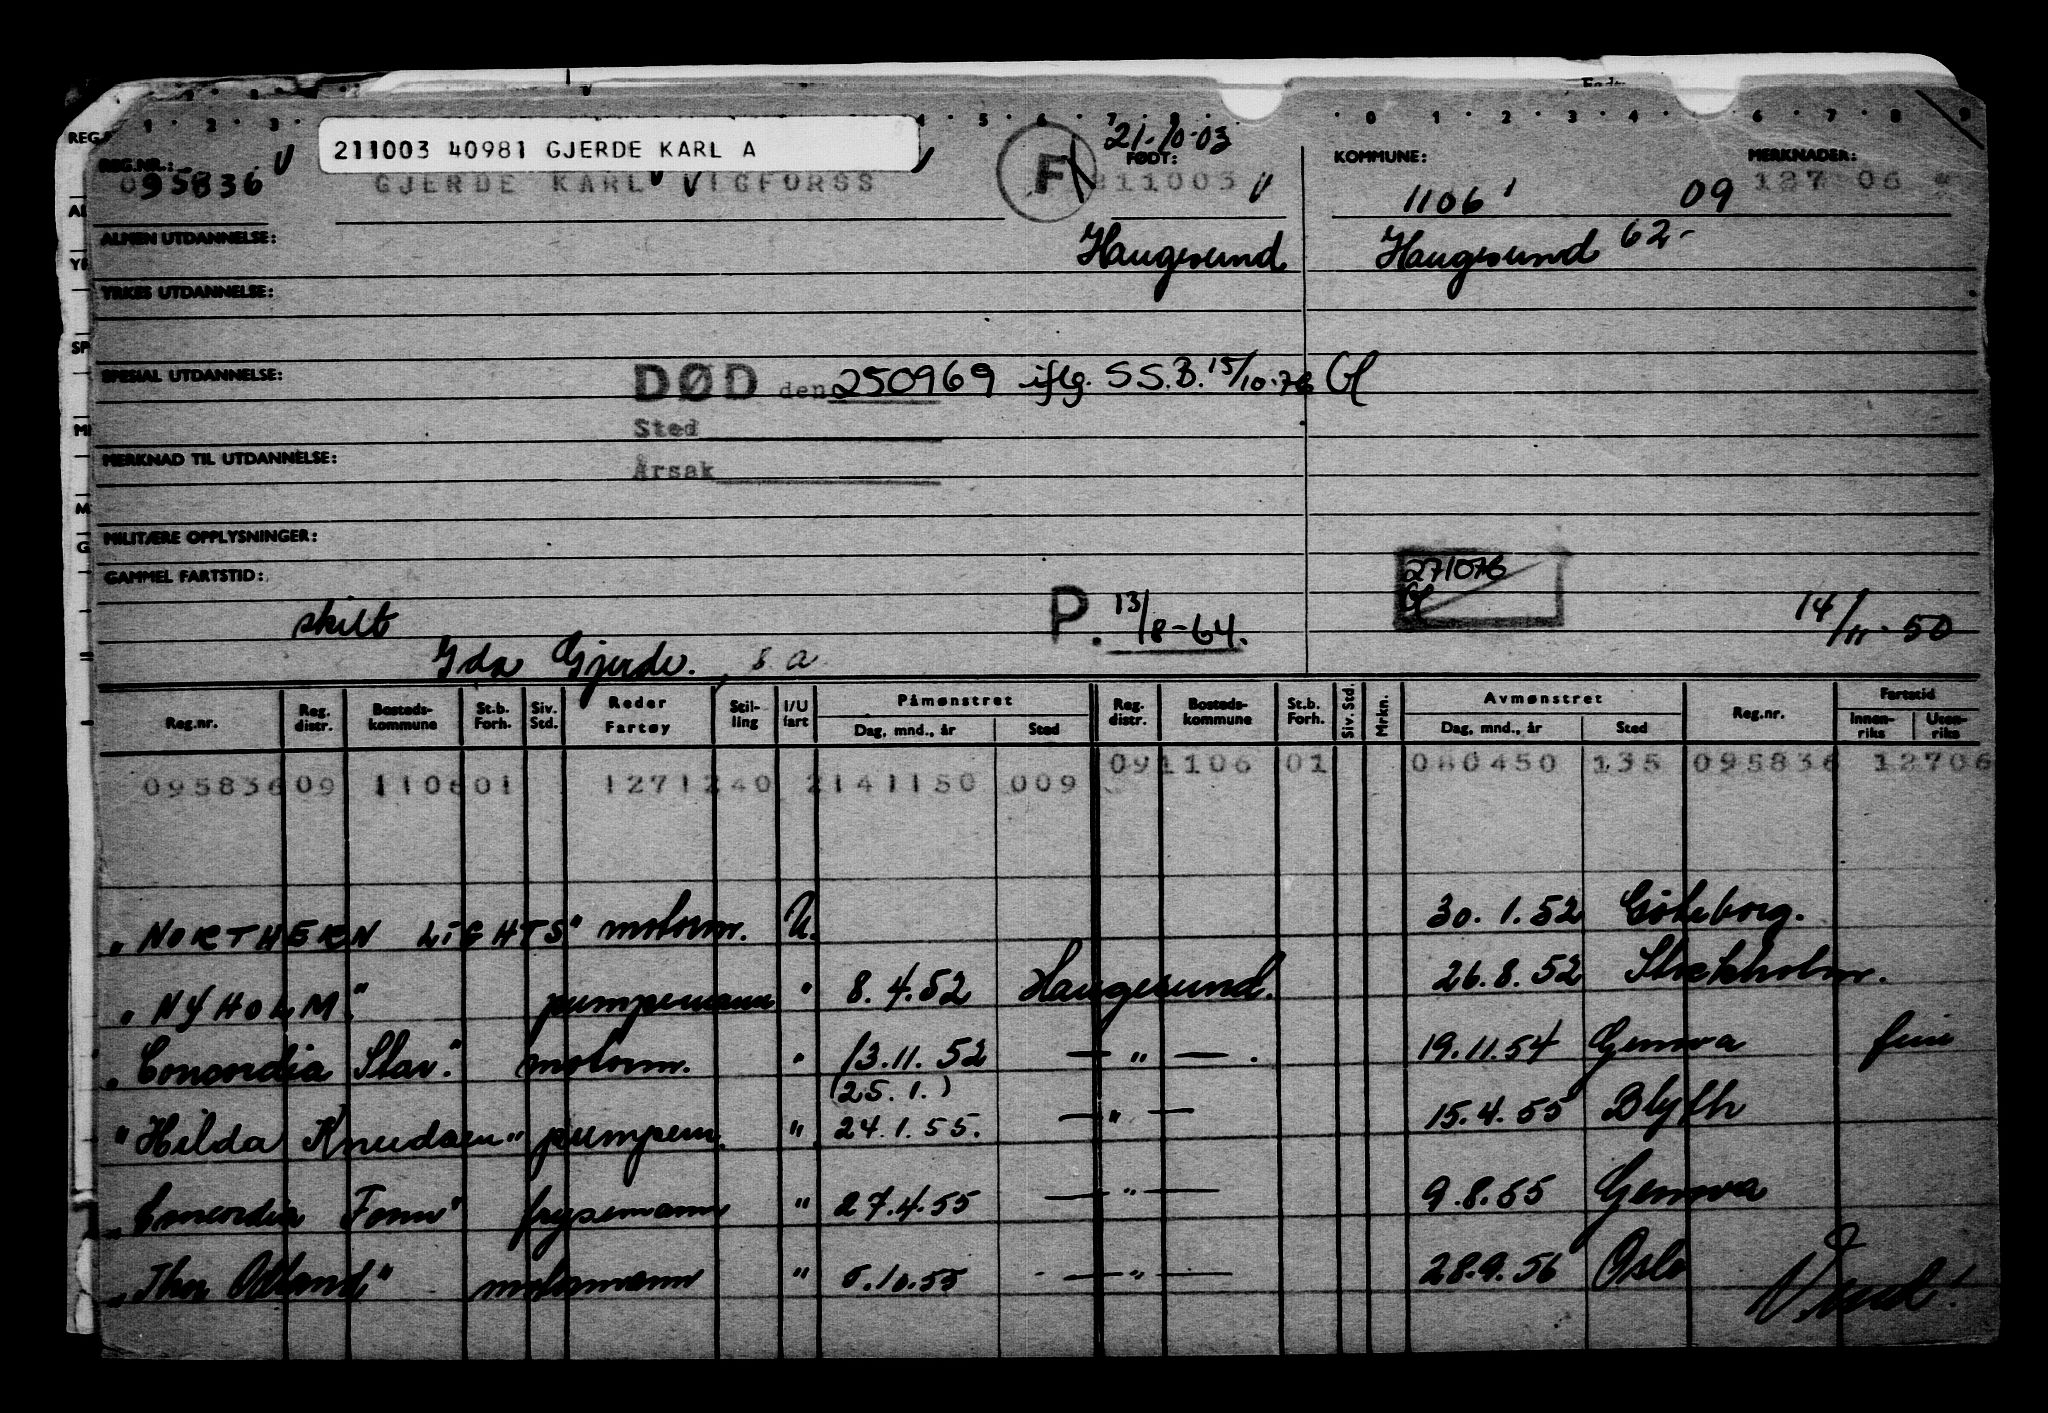 211003 40981 GJERDE KARL A
1 . 2 . 3 4 . 5 . 6 . 7 . 8 . 0 . 1 . 2 . 3 . 4 . 6 . 7 . 8 9
REG.NR.: 21.10.03 FØDT: KOMMUNE: MERKNADER:
095836 GJERDE KARL VIGFORSS F 211003 1106 09 127 06
ALMEN UTDANNELSE: Haugesund Haugesund 62-
YRKES UTDANNELSE:
SPESIAL UTDANNELSE: DØD den 250969 iflg. S.S.B. 15/10-76
Sted
MERKNAD TIL UTDANNELSE: Årsak
MILITÆRE OPPLYSNINGER:
GAMMEL FARTSTID: 271076
skilt P. 13/8-64. 14/11-50
Gjerde.
Reg.nr. Reg. distr. Bosteds-kommune St.b. Forh. Siv. Std. Reder Fartøy Stil-ling I/U fart Påmønstret Dag, mnd., år Sted Reg. distr. Bosteds-kommune St.b. Forh. Siv. Std. Mrkn. Avmønstret Dag, mnd., år Sted Reg.nr. Fartstid Innen-riks Uten-riks
095836 09 1106 01 1271240 2141150 009 09 1106 01 080450 135 095836 12706
"NORTHERN LIGHTS" motorm. U. 30.1.52 Göteborg.
"NYHOLM." pumpemann " 8.4.52 Haugesund. 26.8.52 Stockholm.
"Concordia Star". motorm. " 13.11.52 — " — . 19.11.54 Genova
(25.1.)
"Hilda Knudsen" pumpem. " 24.1.55. — " — 15.4.55 Blyth
"Concordia Fonn" frysemann " 27.4.55 — " — 9.8.55 Genova
"Thor Odland" motormann " 5.10.55 — " — 28.9.56 Oslo